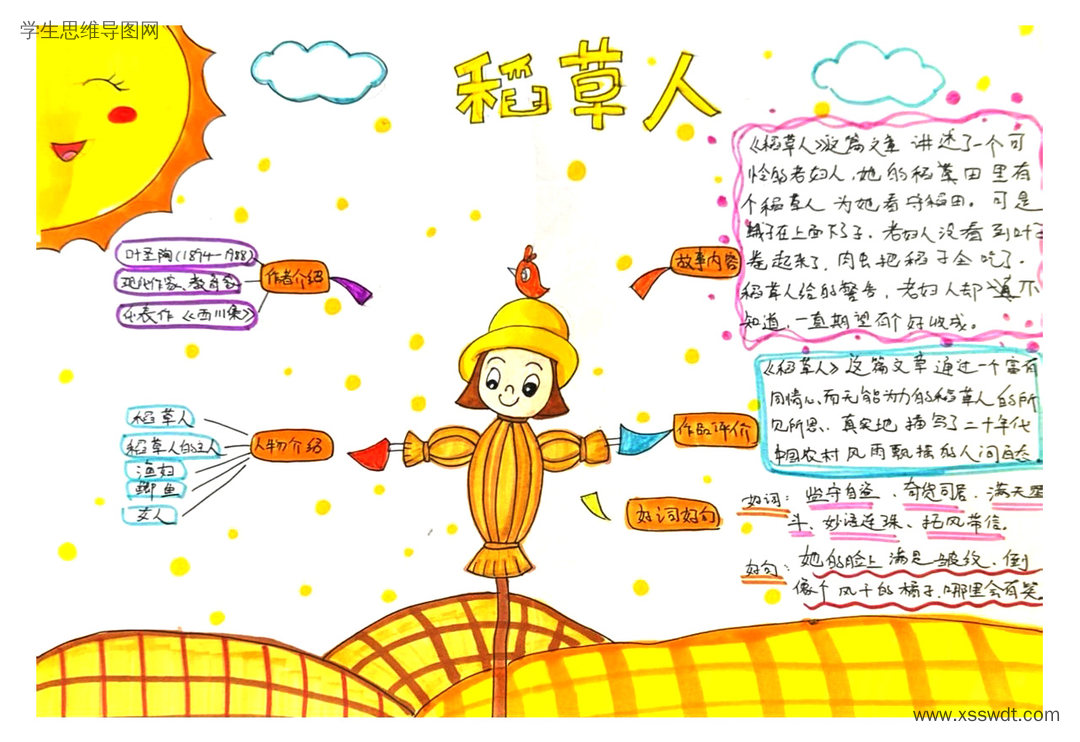 学生思维导图网
稻草人
叶圣陶(1894-1988)
现代作家、教育家
代表作《西川集》
作者介绍
稻草人
稻草人的主人
渔妇
鲫鱼
女人
人物介绍
故事内容
《稻草人》这篇文章 讲述了一个可
怜的老妇人,她的稻草田里有
个稻草人 为她看守稻田。可是
蛾子在上面下了子,老妇人没看到叶子
卷起来了,肉虫把稻子全吃了。
稻草人给的警告,老妇人却 不
知道,一直期望有个好收成。
作品评价
《稻草人》这篇文章通过一个富有
同情心而无能为力的稻草人的所
见所思,真实地描写了二十年代
中国农村风雨飘摇的人间百态
好词好句
好词:监守自盗、奇货可居、满天星
斗、妙语连珠、拓风带信。
好句:她的脸上满是皱纹,倒
像个风干的橘子,哪里会有笑
www.xsswdt.com